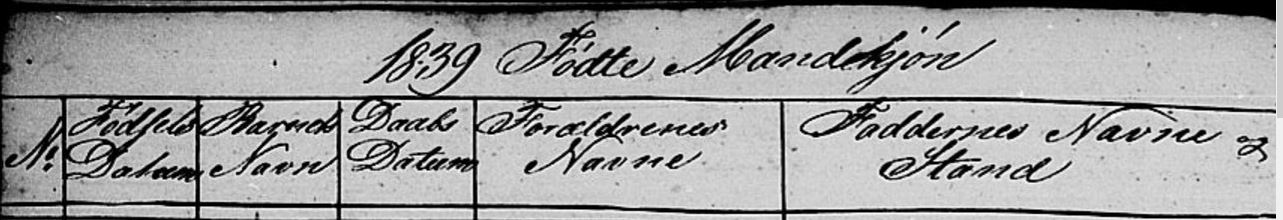 1839 Födte Mandekjön
No. Födsels Datum
Barnets Navn
Daabs Datum
Forældrenes Navne
Faddernes Navne &
Stand